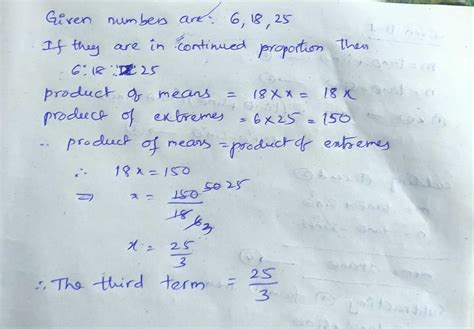 Given numbers are:- 6, 18, 25
If they are in continued proportion then
6:18 :: x:25
product of means = 18 × x = 18x
product of extremes = 6×25 = 150
∴ product of means = product of extremes
∴ 18x = 150
⇒ x = 150 50 25 / 18 6 3
x = 25/3
∴ The third term = 25/3